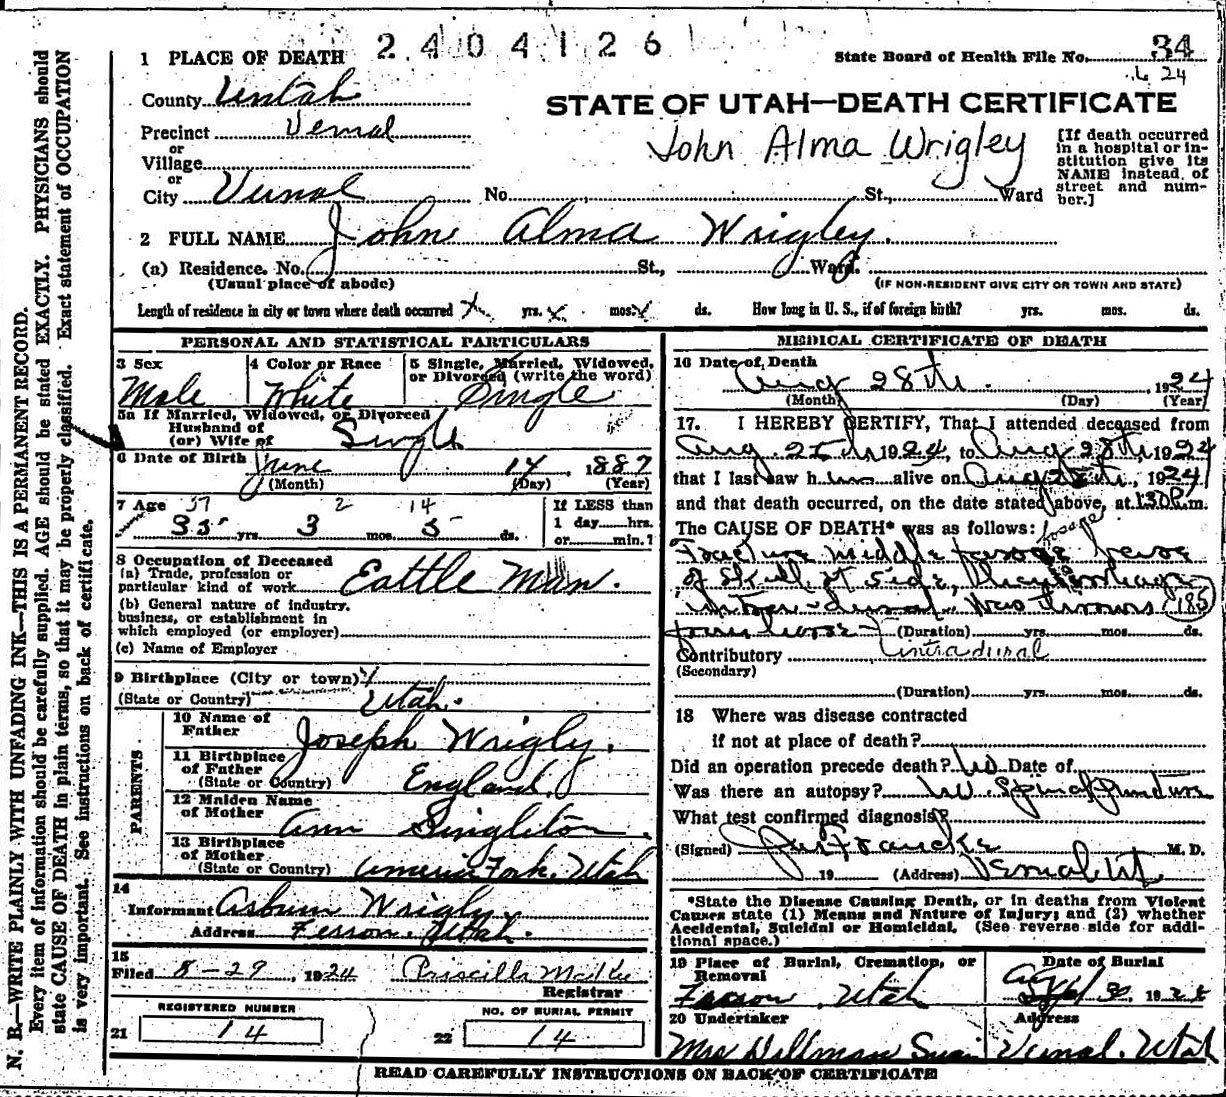 2404126
1 PLACE OF DEATH
State Board of Health File No. 34
24
County Uintah
STATE OF UTAH—DEATH CERTIFICATE
Precinct Vernal
or
Village
or
City Vernal No. St., Ward
John Alma Wrigley
[If death occurred
in a hospital or in-
stitution give its
NAME instead of
street and num-
ber.]
2 FULL NAME John Alma Wrigley.
(a) Residence. No. St., Ward.
(Usual place of abode)
(IF NON-RESIDENT GIVE CITY OR TOWN AND STATE)
Length of residence in city or town where death occurred yrs. mos. ds. How long in U. S., if of foreign birth? yrs. mos. ds.
PERSONAL AND STATISTICAL PARTICULARS
3 Sex
Male
4 Color or Race
White
5 Single, Married, Widowed,
or Divorced (write the word)
Single
5a If Married, Widowed, or Divorced
Husband of
(or) Wife of Single
6 Date of Birth June 14, 1887
(Month) (Day) (Year)
7 Age 37 2 14
35 yrs. 3 mos. 5 ds.
If LESS than
1 day hrs.
or min.?
8 Occupation of Deceased
(a) Trade, profession or
particular kind of work Cattle Man.
(b) General nature of industry,
business, or establishment in
which employed (or employer)
(c) Name of Employer
9 Birthplace (City or town)
(State or Country) Utah.
PARENTS
10 Name of
Father Joseph Wrigly.
11 Birthplace
of Father
(State or Country) England
12 Maiden Name
of Mother Ann Singleton.
13 Birthplace
of Mother
(State or Country) American Fork, Utah
14
Informant Asburn Wrigly
Address Ferron, Utah.
15
Filed 8-29, 1924 Priscilla McKee
Registrar
REGISTERED NUMBER
21 14
NO. OF BURIAL PERMIT
22 14
MEDICAL CERTIFICATE OF DEATH
16 Date of Death
Aug 28th. 1924
(Month) (Day) (Year)
17. I HEREBY CERTIFY, That I attended deceased from
Aug. 25th 1924, to Aug 28th, 1924
that I last saw him alive on Aug 28th, 1924
and that death occurred, on the date stated above, at 1:30 P.m.
The CAUSE OF DEATH* was as follows:
Fracture middle fossae
of Skull, rt side,
was thrown 185
from horse (Duration) yrs. mos. ds.
Contributory Intradural
(Secondary)
(Duration) yrs. mos. ds.
18 Where was disease contracted
if not at place of death?
Did an operation precede death? No Date of
Was there an autopsy? No. Spinal Puncture
What test confirmed diagnosis?
(Signed) Francke M. D.
, 19 (Address) Vernal Ut
*State the Disease Causing Death, or in deaths from Violent
Causes state (1) Means and Nature of Injury; and (2) whether
Accidental, Suicidal or Homicidal. (See reverse side for addi-
tional space.)
19 Place of Burial, Cremation, or
Removal
Ferron, Utah
Date of Burial
30, 192
20 Undertaker
Mrs Dillman Swain
Address
Vernal, Utah
READ CAREFULLY INSTRUCTIONS ON BACK OF CERTIFICATE
N. B.—WRITE PLAINLY WITH UNFADING INK—THIS IS A PERMANENT RECORD.
Every item of information should be carefully supplied. AGE should be stated EXACTLY. PHYSICIANS should
state CAUSE OF DEATH in plain terms, so that it may be properly classified. Exact statement of OCCUPATION
is very important. See instructions on back of certificate.